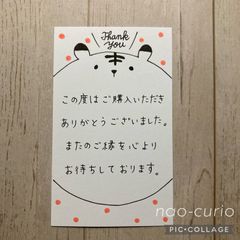 Thank
you
この度はご購入いただき
ありがとうございました。
またのご縁を心より
お待ちしております。
nao-curio
PIC•COLLAGE